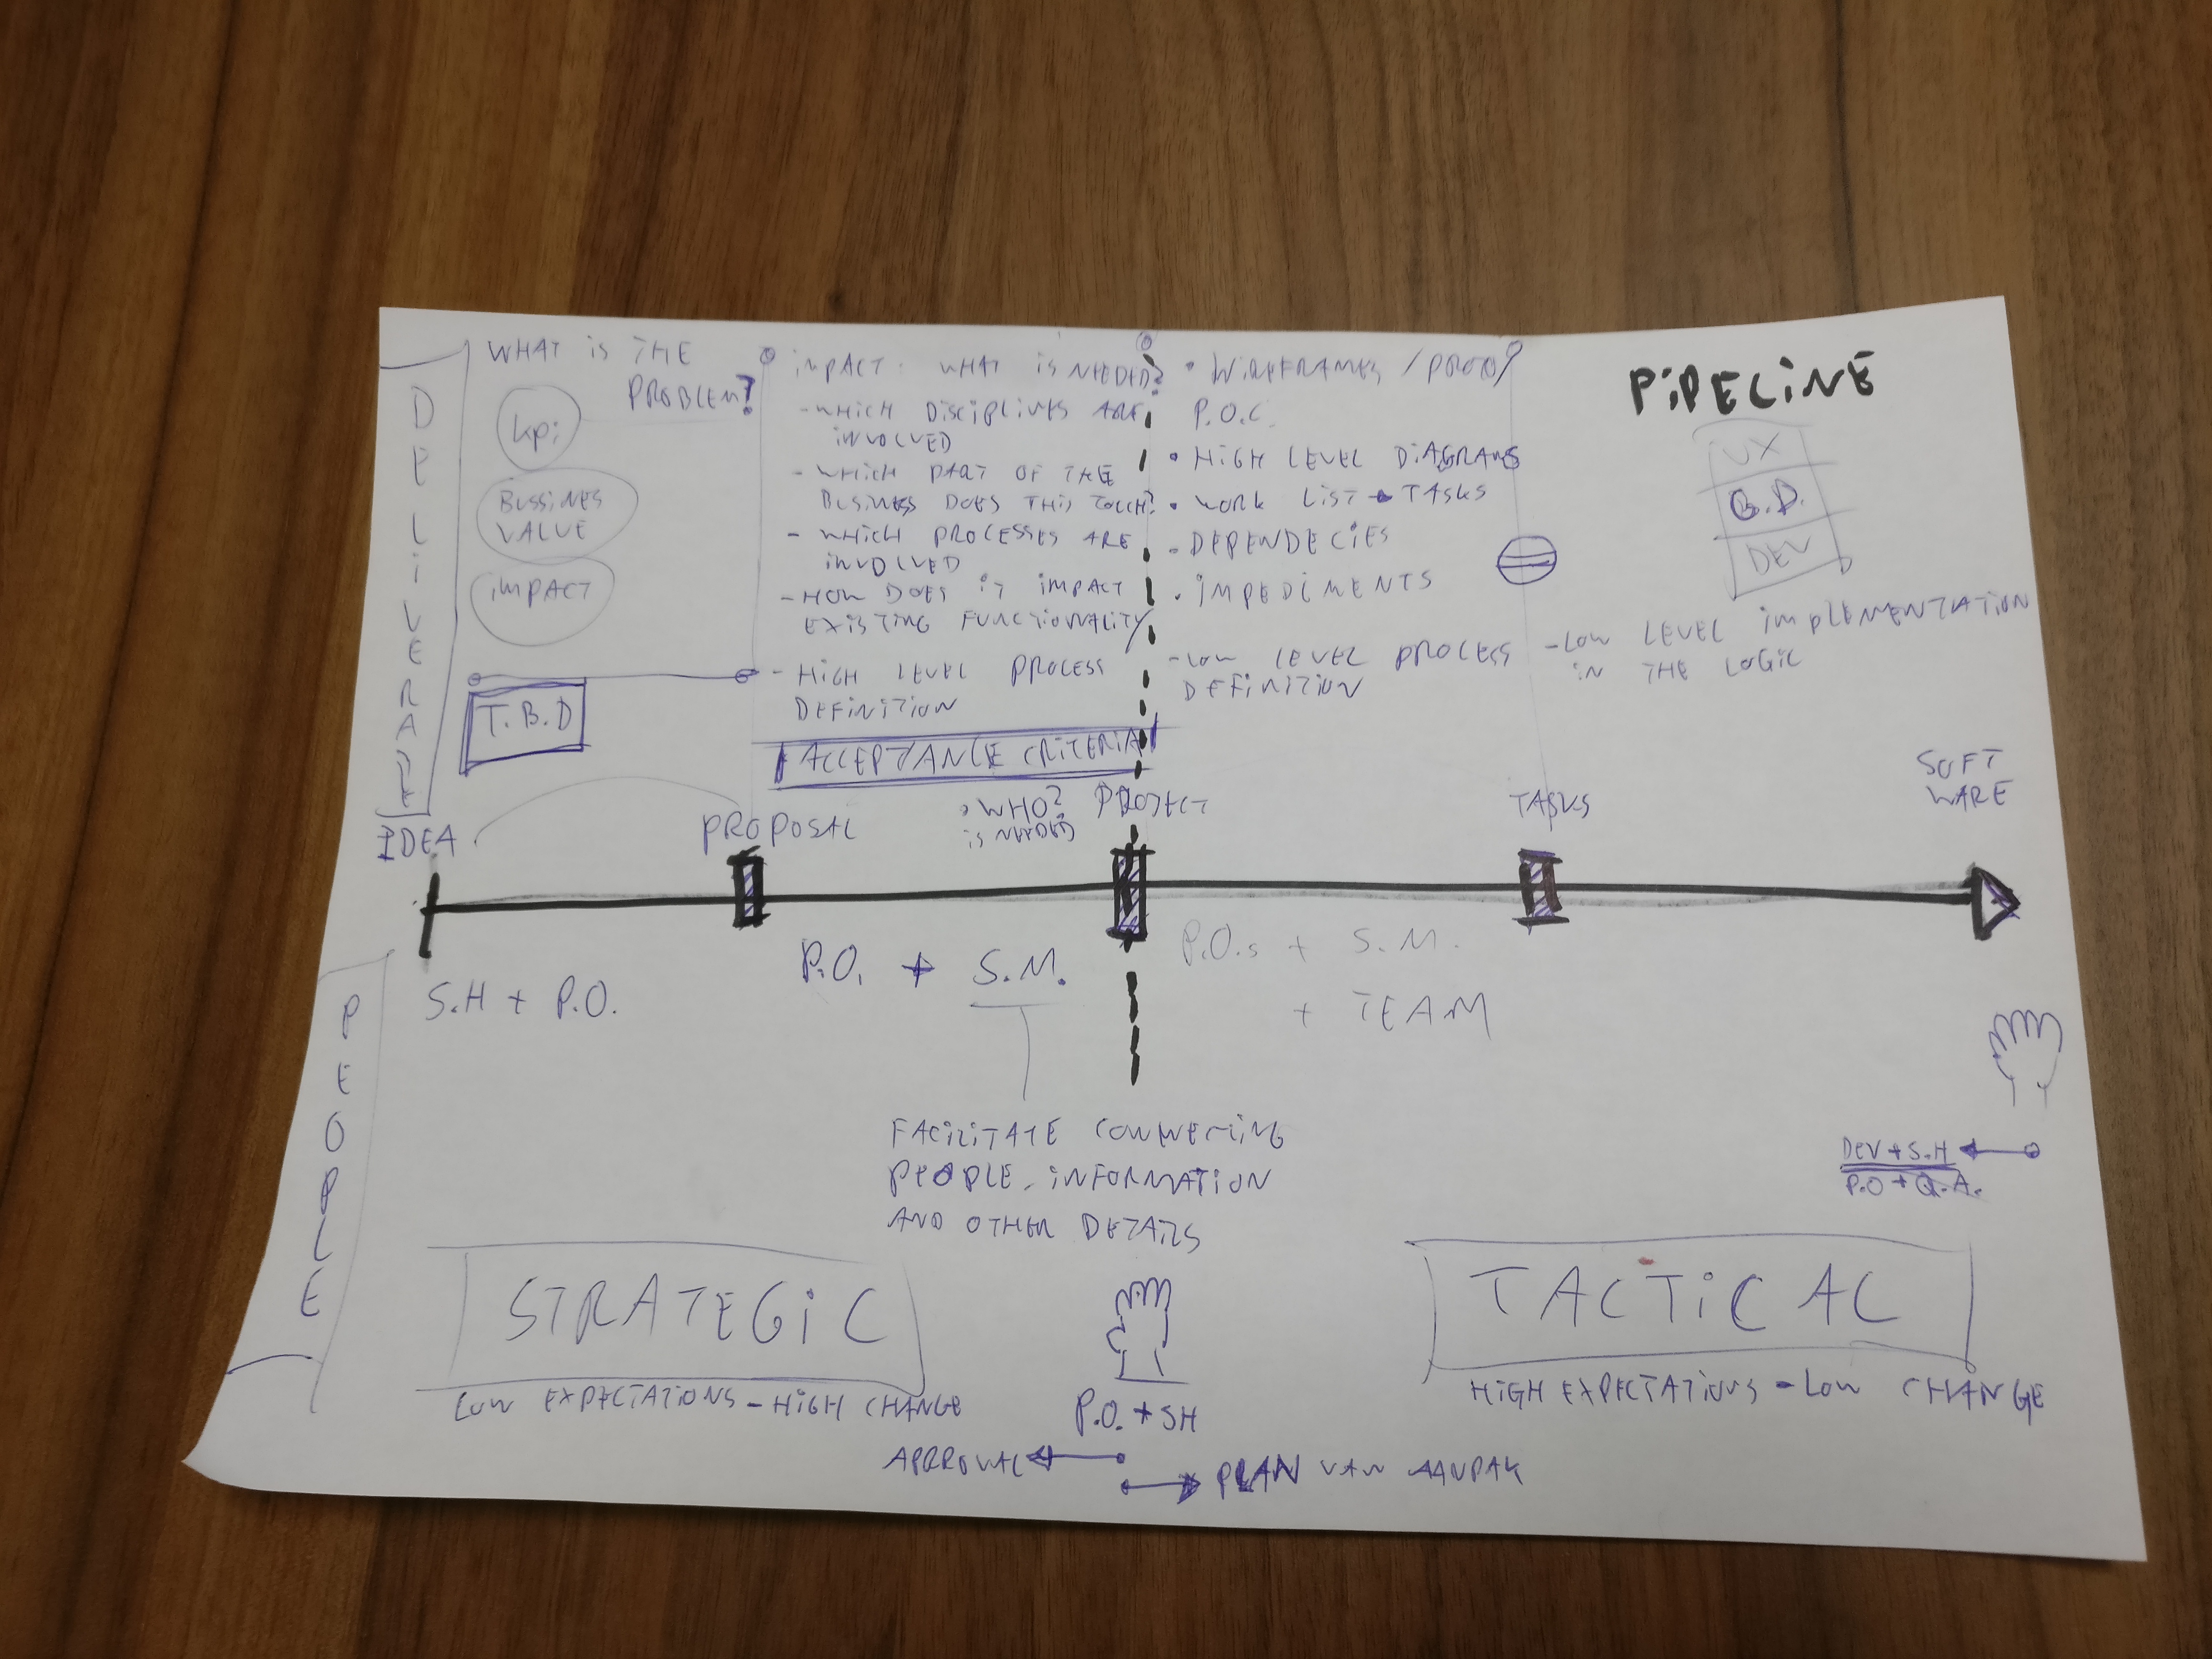 DELIVERABLE
WHAT is THE
PROBLEM?
kpi
BUSSINES
VALUE
iMPACT
T.B.D
iMPACT. WHAT iS NEEDED?
- WHICH DISCIPLINES ARE
iNVOLVED
- WHICH PART OF THE
BUSINESS DOES THIS TOUCH?
- WHICH PROCESSES ARE
iNVOLVED
- HOW DOES iT iMPACT
EXiSTiNG FUNCTIONALITY
- HIGH LEVEL PROCESS
DEFiNiTiON
ACCEPTANCE CRiTERiA
• WHO?
iS NEEDED
• WiREFRAMES / PROTO/
P.O.C.
• HIGH LEVEL DiAGRAMS
• WORK LiST → TASKS
- DEPENDECiES
• iMPEDiMENTS
- LOW LEVEL PROCESS
DEFiNiTiON
PiPELiNE
UX
B.D.
DEV
- LOW LEVEL iMPLEMENTATION
iN THE LOGiC
IDEA
PROPOSAL
PROJECT
TASKS
SOFT
WARE
PEOPLE
S.H + P.O.
P.O. + S.M.
P.O.s + S.M.
+ TEAM
FACiLiTATE CONNECTiNG
PEOPLE, iNFORMATiON
AND OTHER DETAiLS
DEV + S.H
P.O + Q.A.
STRATEGiC
LOW EXPECTATiONS - HiGH CHANGE
P.O. + SH
APPROVAL
PLAN VAN AANPAK
TACTiCAL
HiGH EXPECTATiONS - LOW CHANGE